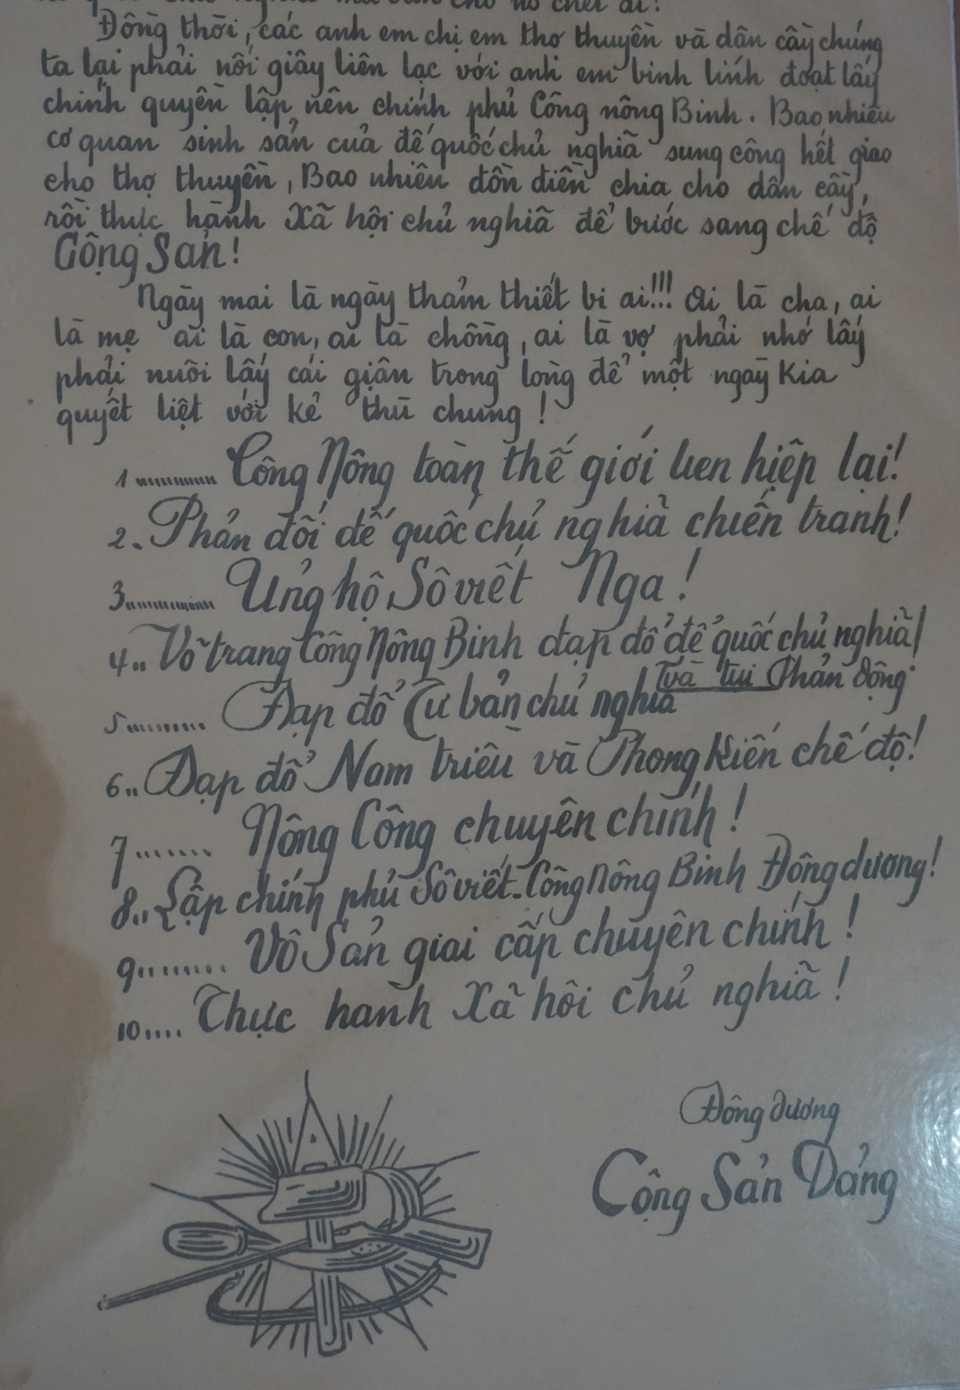 Đồng thời, các anh em chị em thợ thuyền và dân cầy chúng
ta lại phải nối giây liên lạc với anh em binh lính đoạt lấy
chính quyền lập nên chính phủ Công nông Binh. Bao nhiêu
cơ quan sinh sản của đế quốc chủ nghĩa sung công hết giao
cho thợ thuyền, Bao nhiêu đồn điền chia cho dân cầy,
rồi thực hành Xã hội chủ nghĩa để bước sang chế độ
Cộng Sản!
Ngày mai là ngày thảm thiết bi ai!!! Ai là cha, ai
là mẹ ai là con, ai là chồng, ai là vợ phải nhớ lấy
phải nuôi lấy cái giận trong lòng để một ngày kia
quyết liệt với kẻ thù chung!
1......... Công Nông toàn thế giới lien hiệp lại!
2. Phản đối đế quốc chủ nghĩa chiến tranh!
3............ Ủng hộ Sô viết Nga!
4.. Võ trang Công Nông Binh đạp đổ đế quốc chủ nghĩa!
và tui Phản động
5......... Đạp đổ Tư bản chủ nghĩa
6.. Đạp đổ Nam triều và Phong Kiến chế độ!
7....... Nông Công chuyên chính!
8.. Lập chính phủ Sô viết-Công Nông Binh Đông dương!
9......... Vô Sản giai cấp chuyên chính!
10.... Thực hành Xã hôi chủ nghĩa!
Đông dương
Cộng Sản Đảng